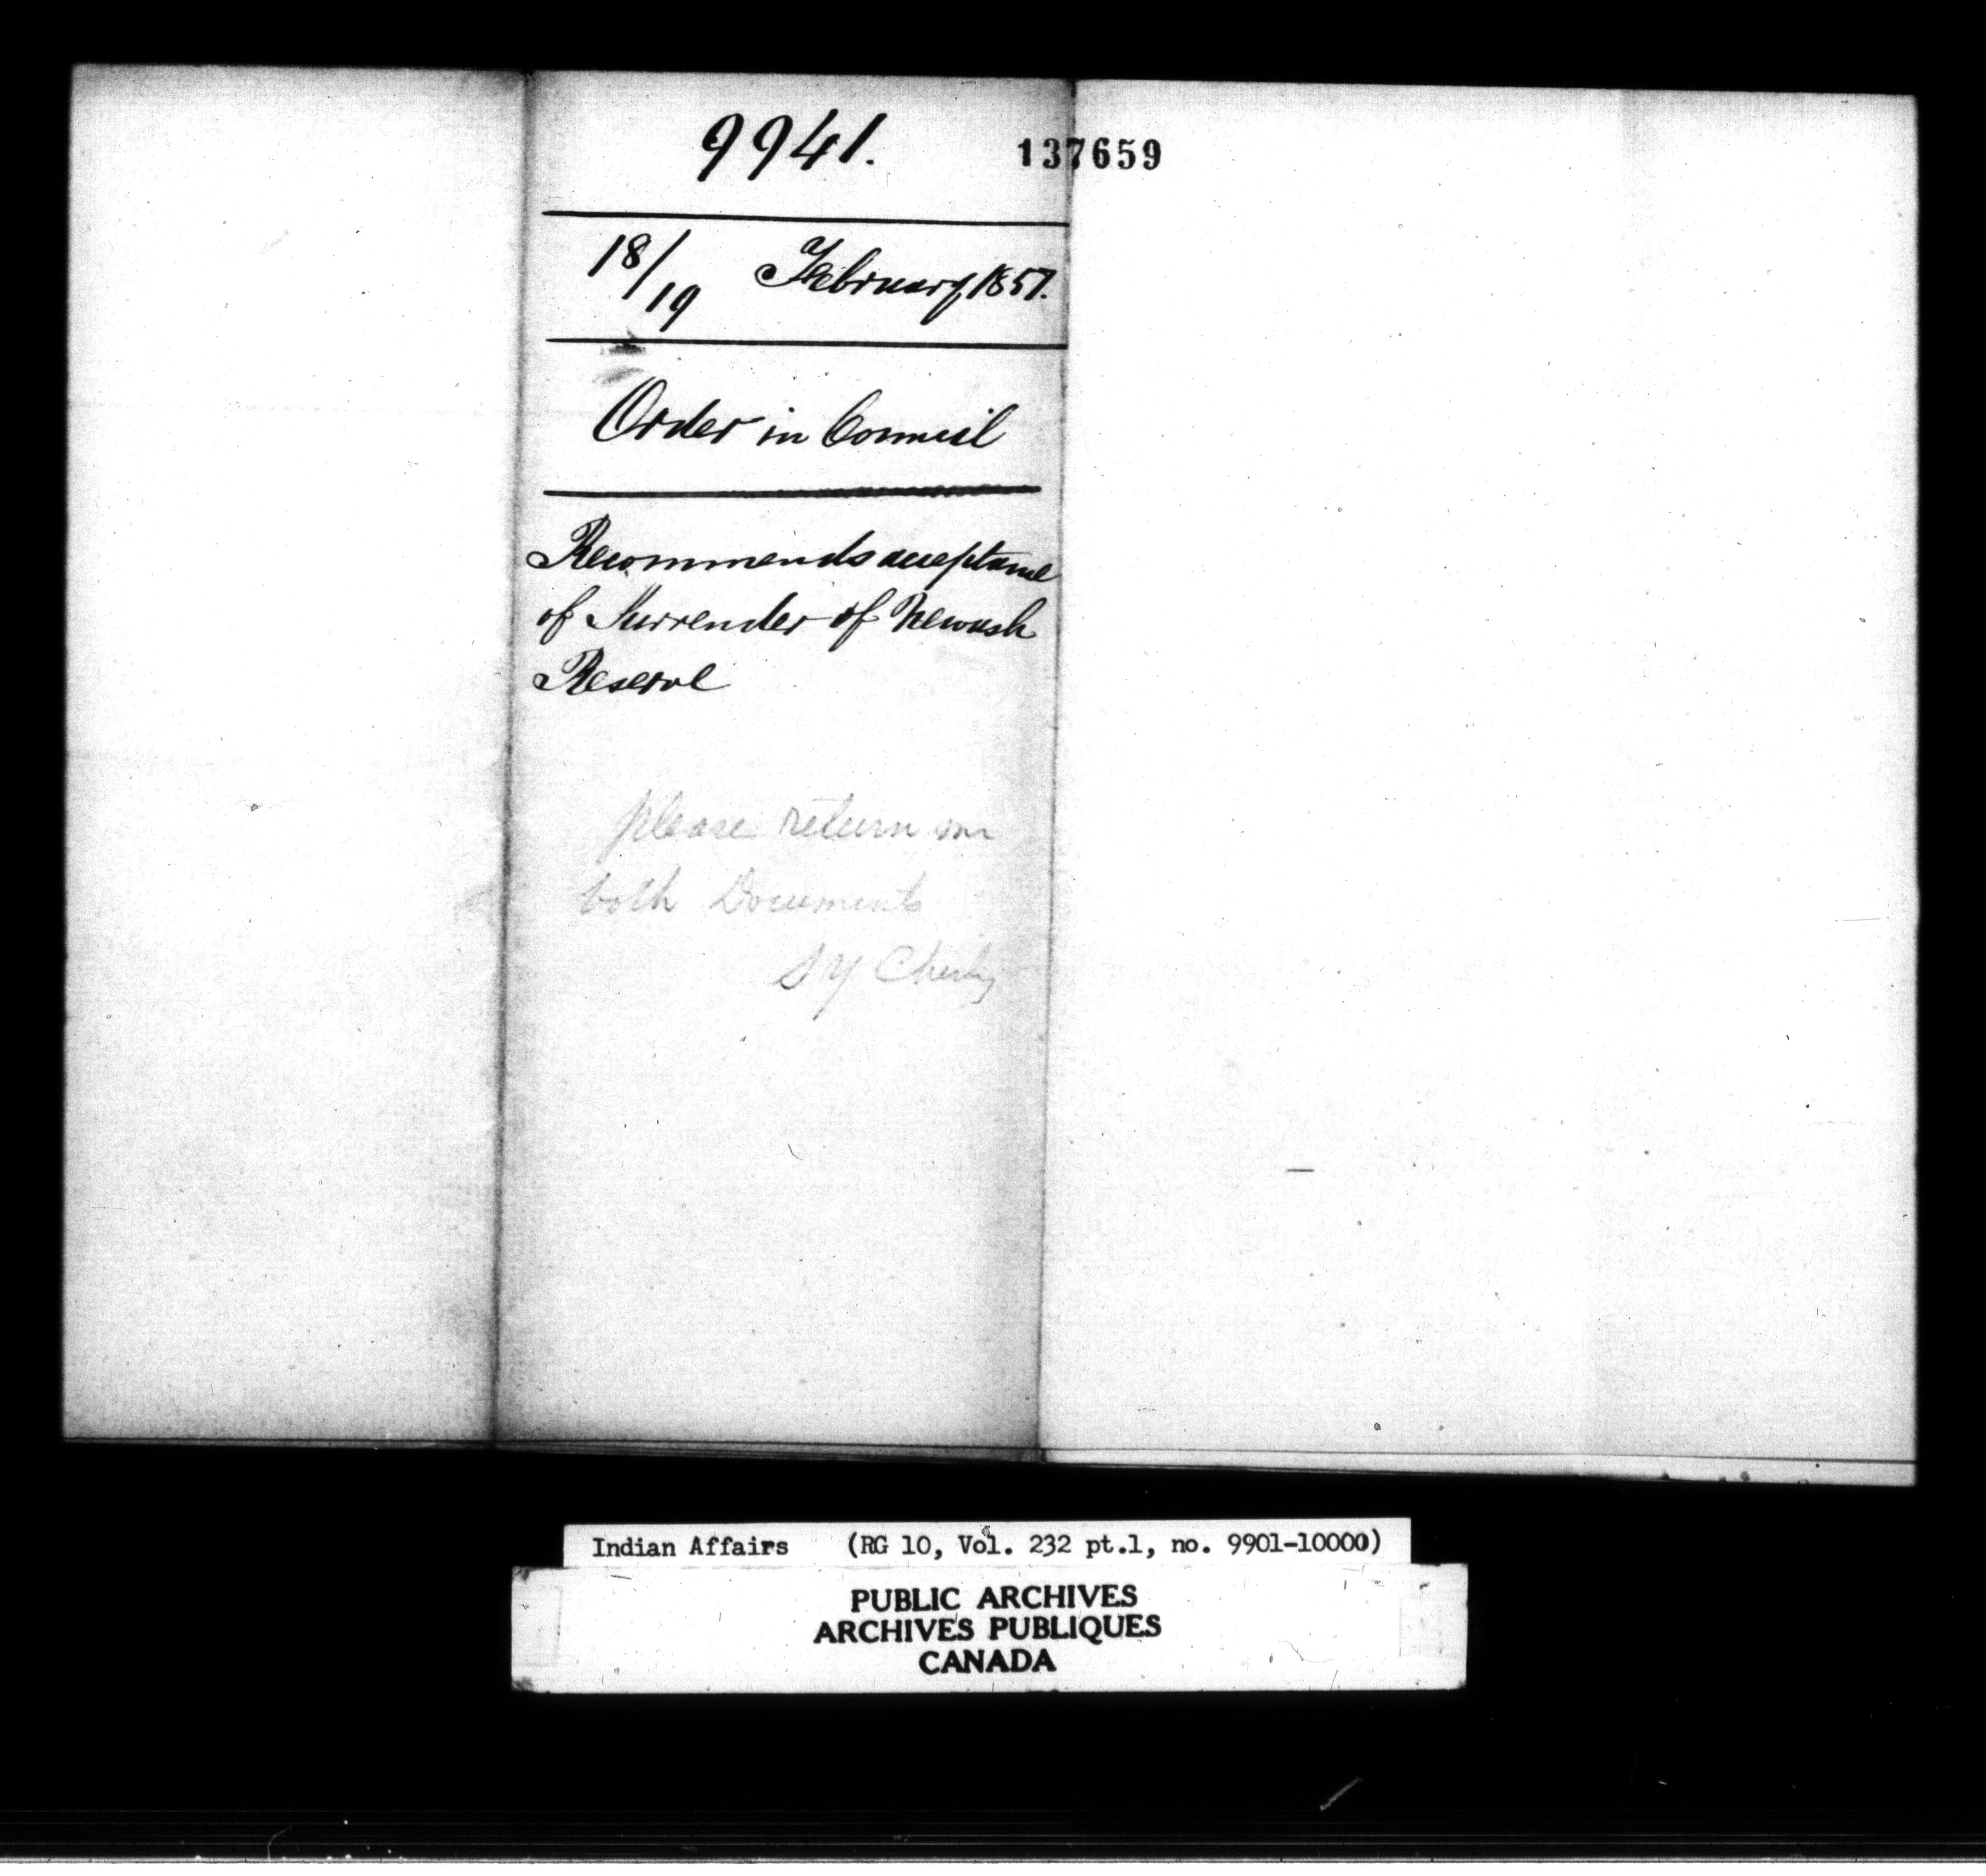 9941.
137659
18/19 February 1857.
Order in Council
Recommends acceptance
of Surrender of Newash
Reserve
please return me
both Documents
S Y Chesley
Indian Affairs (RG 10, Vol. 232 pt.1, no. 9901-10000)
PUBLIC ARCHIVES
ARCHIVES PUBLIQUES
CANADA